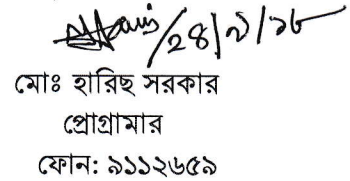 ২৪/৯/১৮
মোঃ হারিছ সরকার
প্রোগ্রামার
ফোন: ৯১১২৬৫৯